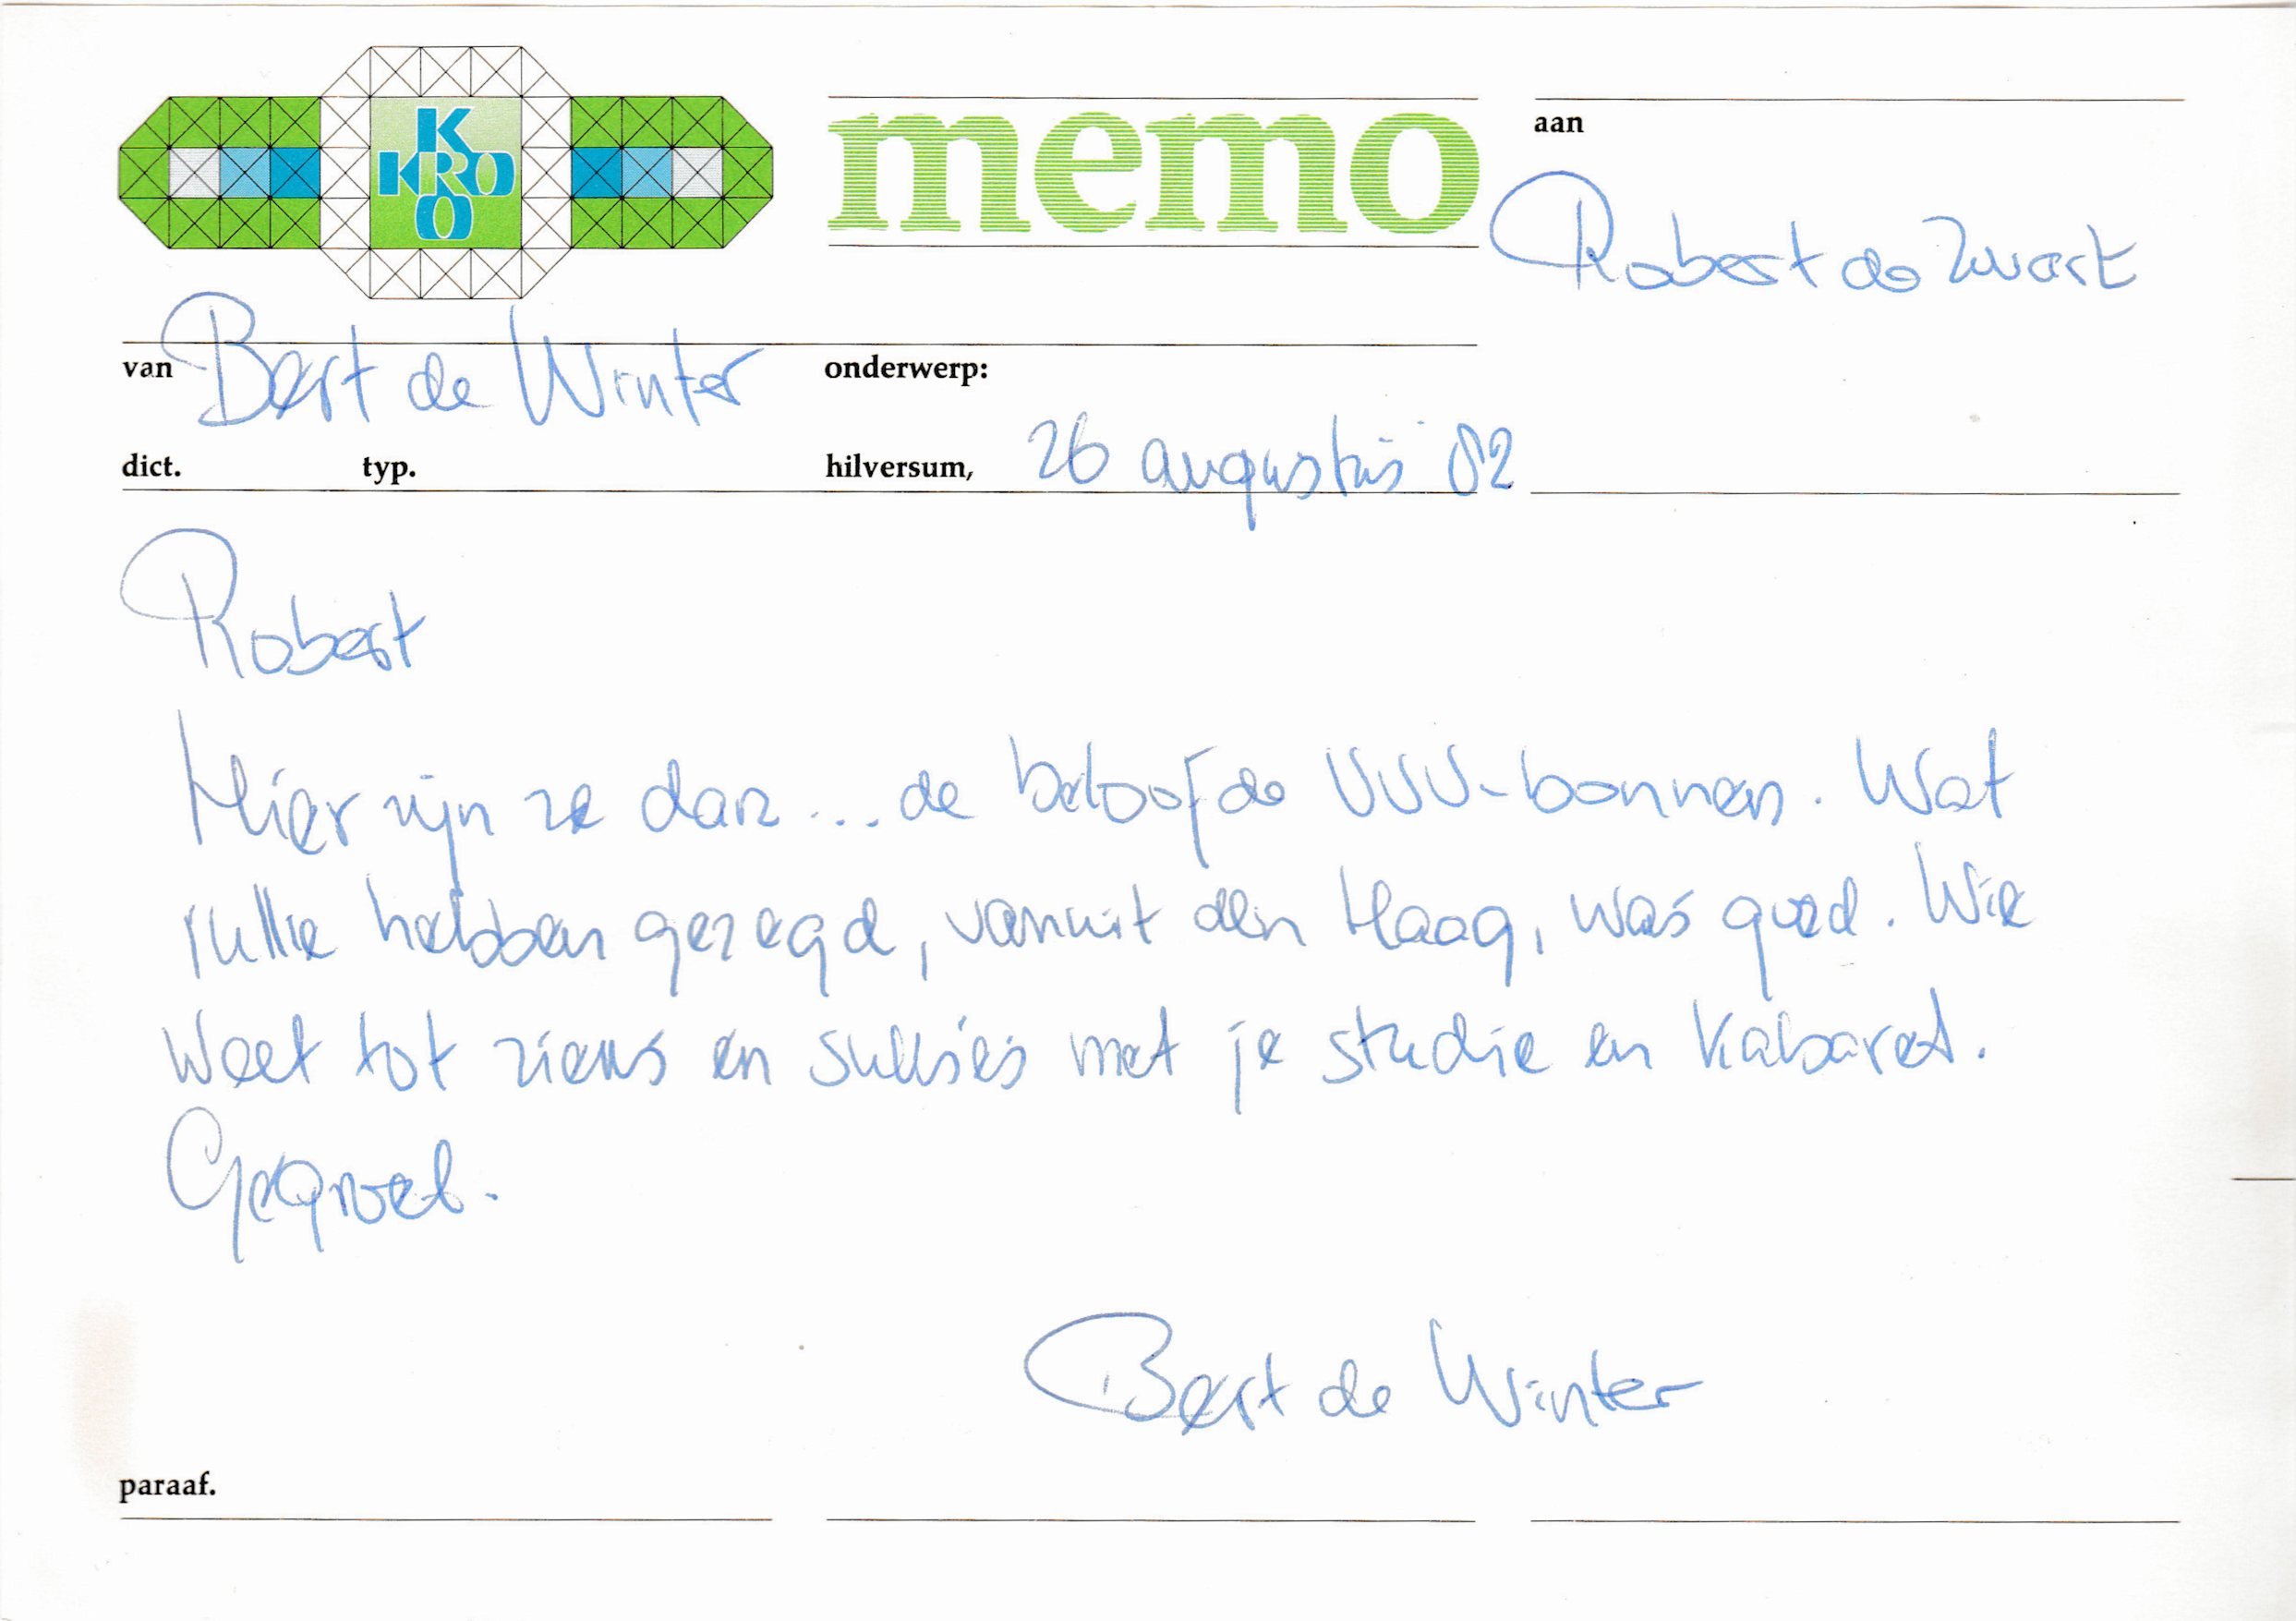 K
KRO
O
memo
aan
Robert de Zwart
van Bert de Winter
onderwerp:
dict. typ.
hilversum, 26 augustus 82
Robert
Hier zijn ze dan... de beloofde VVV-bonnen. Wat
jullie hebben gezegd, vanuit den Haag, was goed. Wie
weet tot ziens en sukses met je studie en Kabaret.
Gegroet.
Bert de Winter
paraaf.